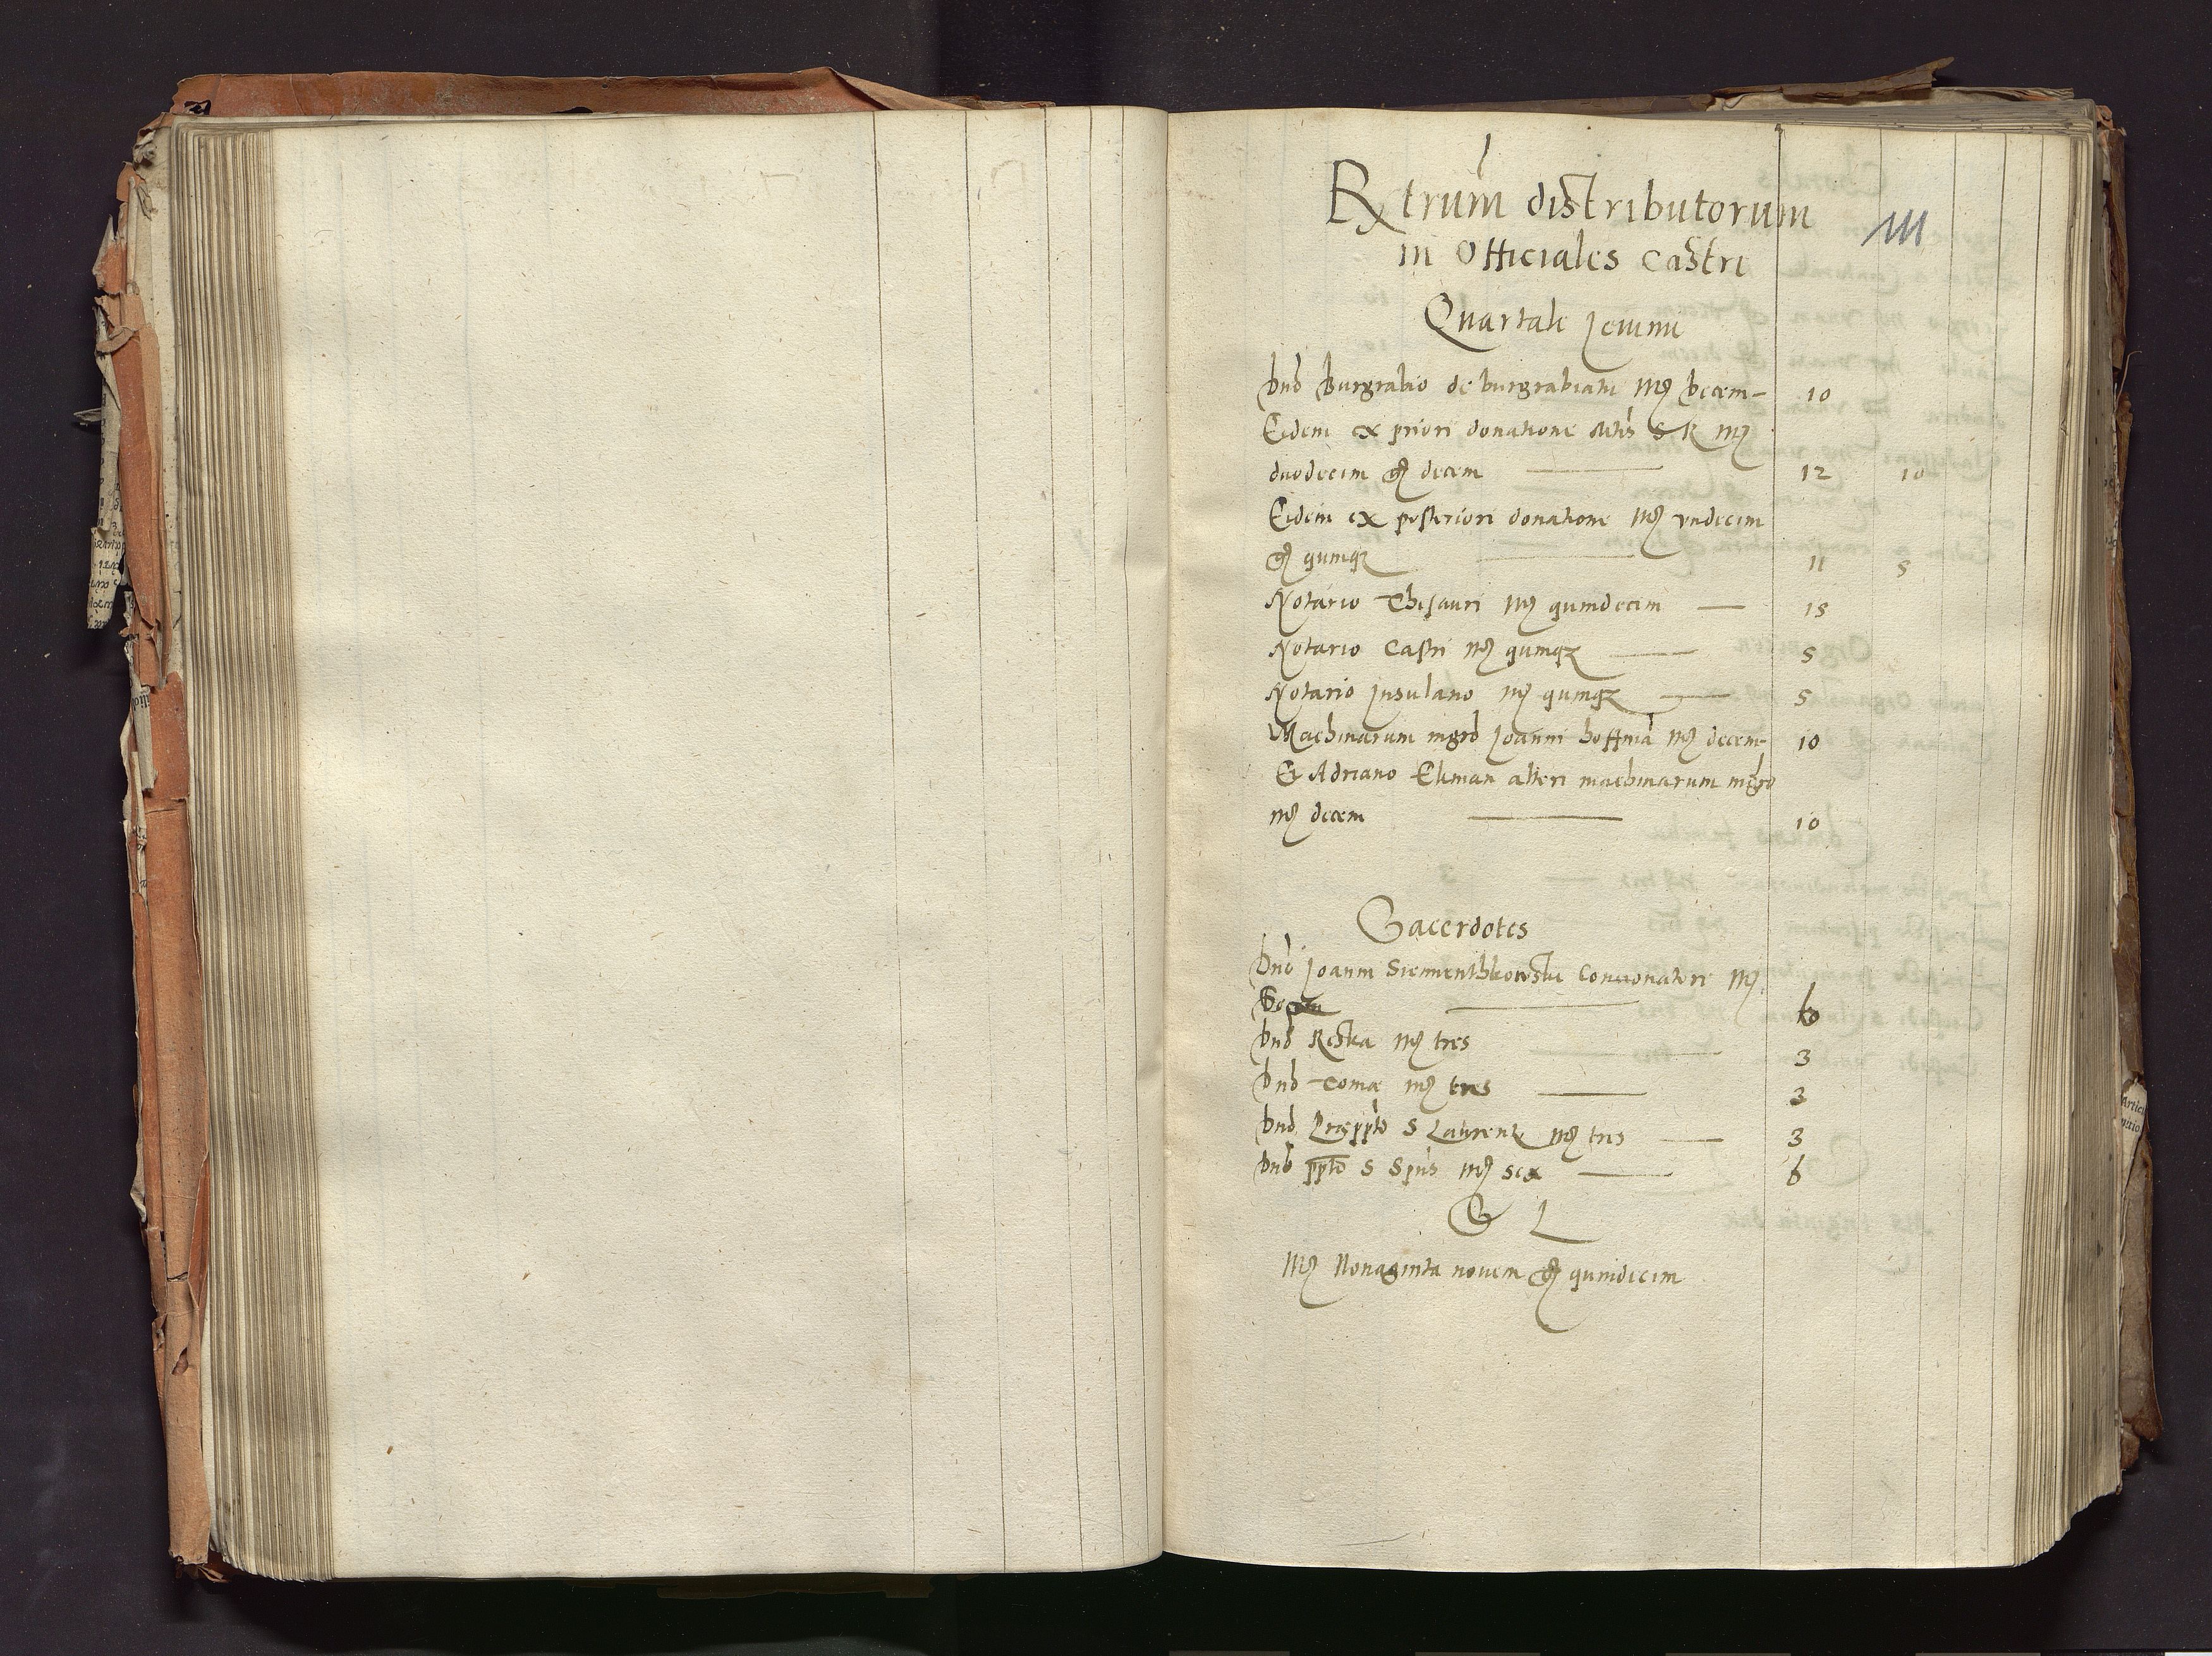 Rtrum distributorum
in Officiales Castri
111
Quartale Jeiunii
Dno Burgrabio de burgrabiatu Mr Decem 10
Eidem ex priori donatione Mtis S R Mr
duodecim gr decem 12 10
Eidem ex posteriori donatione Mr vndecim
gr quinqz 11 5
Notario Thesauri Mr quindecim 15
Notario Castri Mr quinqz 5
Notario Insulano Mr quinqz 5
Machinarum mgro Joanni hoffma Mr decem 10
Et Adriano Elman alteri machinarum mgro
Mr decem 10
Sacerdotes
Dno Joanni Siemienthkowski Concionatori Mr
6
Dno Reska Mr tres 3
Dno Tomæ Mr tres 3
Dno Præppto S Laurentii Mr tres 3
Dno ppto S Spus Mr sex 6
S L
Mr Nonaginta novem gr quindecim